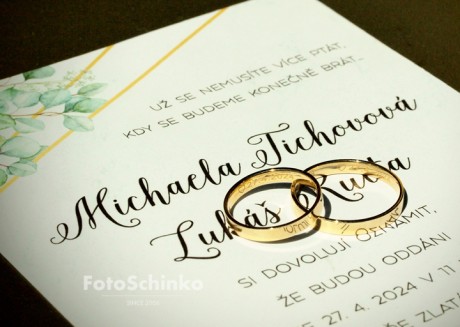 UŽ SE NEMUSÍTE VÍCE PTÁT,
KDY SE BUDEME KONEČNĚ BRÁT...
Michaela Tichovová
Lukáš
SI DOVOLUJÍ OZNÁMIT,
ŽE BUDOU ODDÁNI
27. 4. 2024 V 11
FotoSchinko